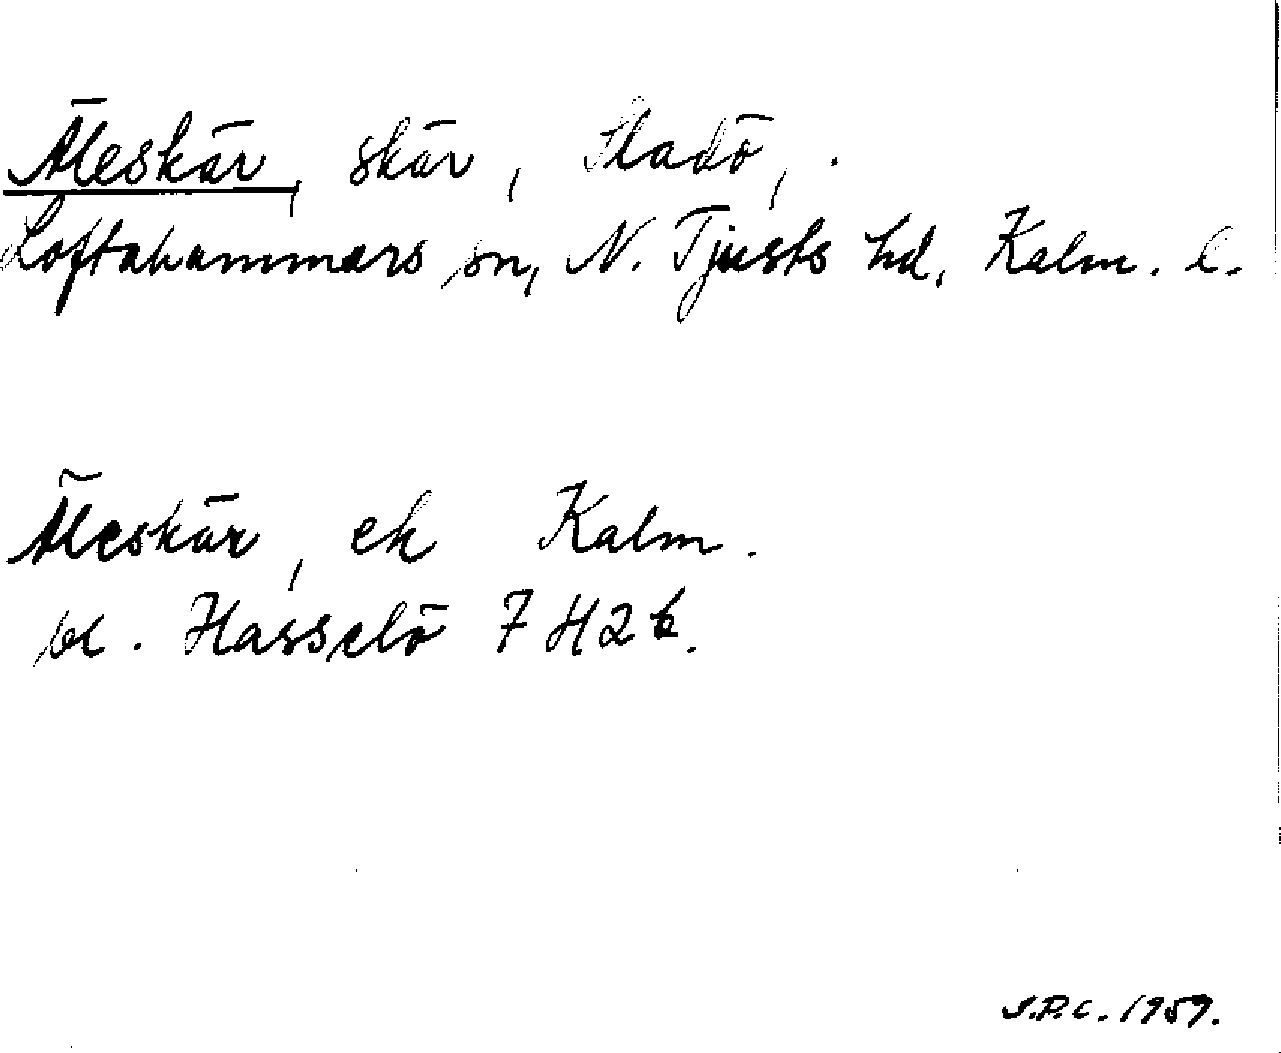 Äleskär, skär, Sladö, .
Loftahammars sn, N. Tjusts hd, Kalm. l.
Äleskär, ek Kalm.
bl. Hasselö 7 H 2 b.
J.P.C. 1959.